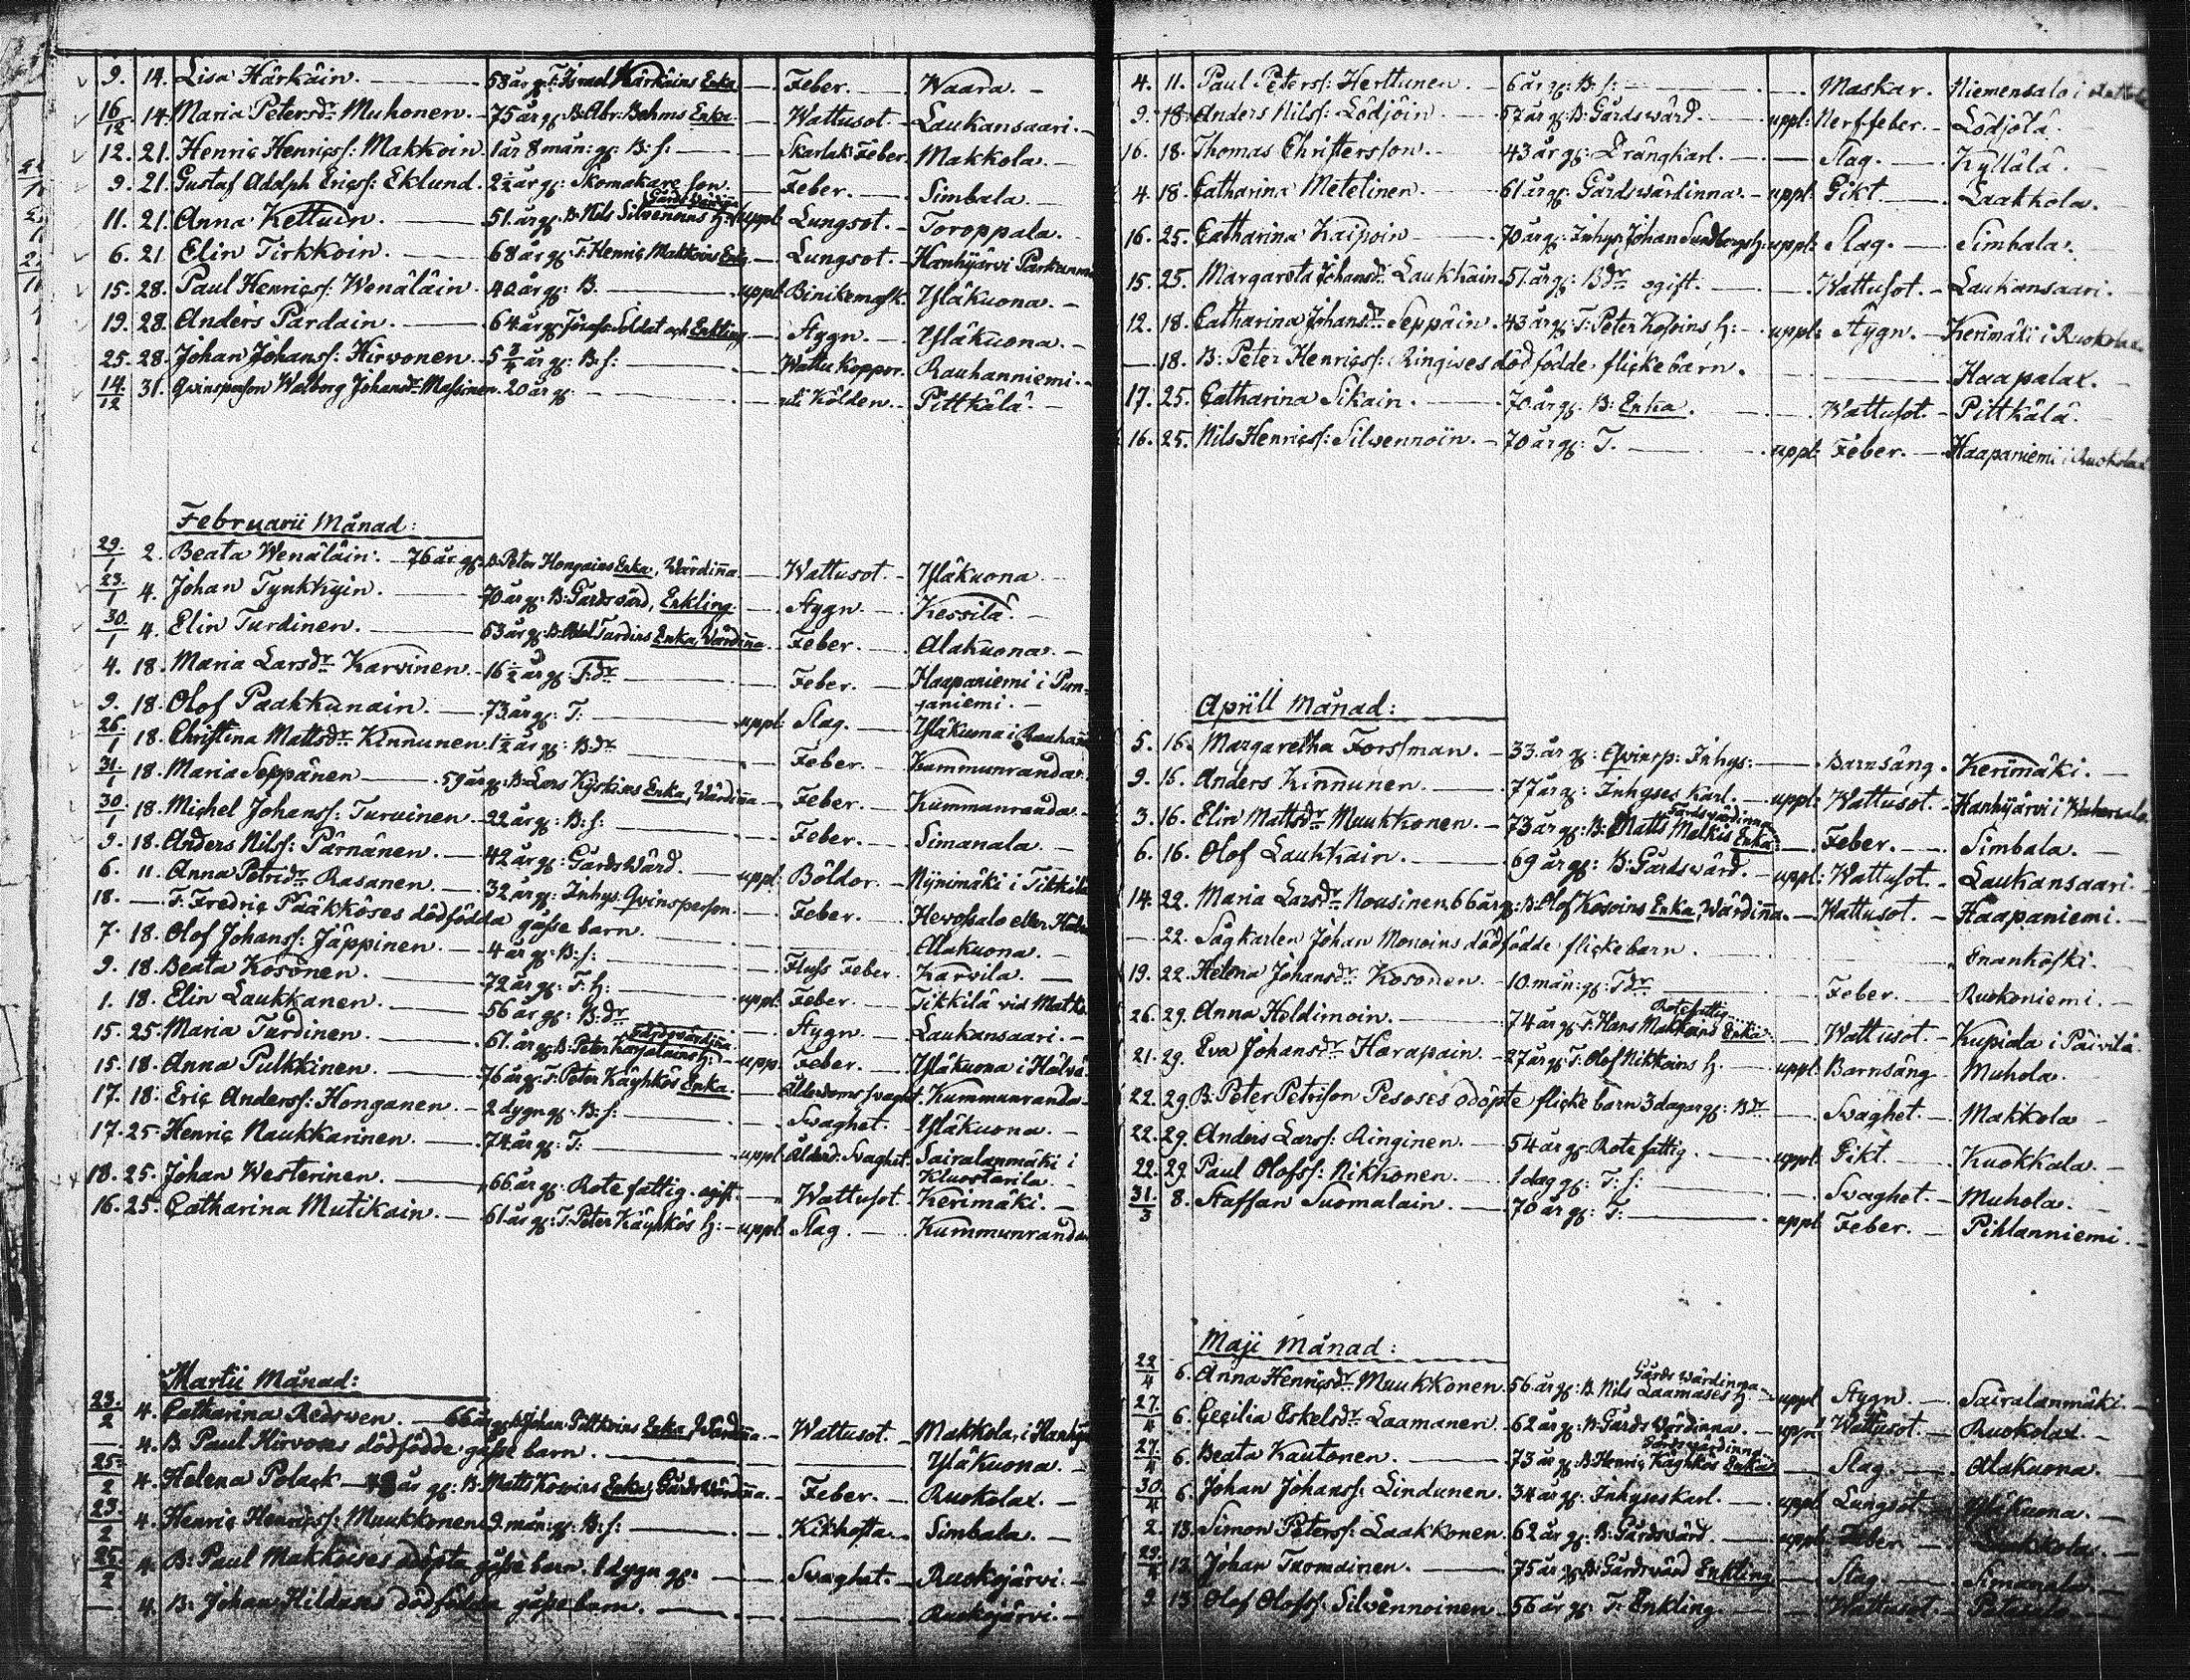 9. 14. Lisa Härkäin. 58 år gl: T. Israel Härkäins Enka Feber. Waara.
16/12 14. Maria Petersdr Muhonen. 75 år gl: B. Abr: Bohms Enka. Wattusot. Laukansaari.
12. 21. Henric Henricss: Makkoin 1 år 8 mån: gl: B: s: Skarlak: Feber. Makkola.
9. 21. Gustaf Adolph Ericss: Eklund. 2½ år gl: Skomakare son. Feber. Simbala.
11. 21. Anna Kettuin. 51. år gl: B. Nils Silvenoins h: Gårds Wärdinna uppl: Lungsot. Toroppala.
6. 21 Elin Tirkkoin. 68 år gl: T. Henric Makkoins Enka Lungsot. Hanhijärvi
15. 28. Paul Henricss: Wenäläin. 40 år gl: B. uppl: Yläkuona.
19. 28. Anders Pardain. 64 år gl: Soldat och Enkling Stygn. Yläkuona.
25. 28. Johan Johanss: Hirvonen. 5¾ år gl: B: s: Wattu koppor. Rauhanniemi.
14/12 31. Qvinsperson Walborg Johansdr Massinen. 20 år gl: uti Kölden. Pittkälä.
Februarii Månad:
29./1 2. Beata Wenäläin. 76 år gl: B: Peter Hongains Enka, Wärdinna Wattusot. Yläkuona
23./1 4. Johan Tynkkyin. 70 år gl: B: Gårdswärd, Enkling. Stygn. Kessilä.
30./1 4. Elin Turdinen. 63 år gl: B: Turdins Enka, Wärdinna Feber. Alakuona.
4. 18. Maria Larsdr Karvinen. 16½ år gl: T: dr Feber. Haapaniemi i Pun-
janiemi.
9. 18. Olof Paakkunain. 73 år gl: T: uppl: Slag. Yläkuona i
26./1 18. Christina Mattsdr Kinnunen 1½ år gl: B: dr Feber. Kummunranda.
31./1 18. Maria Seppänen 59 år gl: B: Lars Enka, Wärdinna Feber. Kummunranda.
30./1 18. Michel Johanss: Turuinen 22 år gl: B: s: Feber. Simanala.
9. 18. Anders Nilss: Pärnänen. 42 år gl: Gårdswärd. uppl: Böldor. Nynimäki i Tikkilä
6. 11. Anna Petersdr Rasanen. 32 år gl: Inhys. Qvinsperson. Feber. Hevosalo eller
18. T. Fredric Pääkköses dödfödda gåsse barn. Alakuona.
7. 18. Olof Johanss: Jäppinen. 4 år gl: B: s: Fluss Feber. Karvila.
9. 18. Beata Kosonen. 72 år gl: T. h: uppl: Feber. Tikkilä vid
1. 18. Elin Laukkanen. 56 år gl: B: dr Stygn. Laukansaari.
15. 25. Maria Turdinen. 61. år gl: B: Peter Karjalains h: Gårdswärdinna uppl: Feber. Yläkuona i
15. 18. Anna Pulkkinen. 76 år gl: T: Peter Käyhkös Enka. Ålderdoms svaghet. Kummunranda
17. 18. Eric Anderss: Honganen. 2 dygn gl: B: s: Svaghet. Yläkuona.
17. 25. Henric Naukkarinen. 74 år gl: T: uppl: Ålderd: Svaghet. Sairalanmäki i
Kluostarila.
18. 25. Johan Westerinen. 66 år gl: Rote fattig. ogift. Wattusot. Kerimäki.
16. 25. Catharina Mutikain. 61 år gl: T: Peter Käyhkös h: uppl: Slag. Kummunranda
Martii Månad:
23./2 4. Catharina Redsven. 66 år gl: B: Johan Pittkoins Enka, Wärdinna Wattusot. Makkola, i
4. B. Paul Hirvoses dödfödde gåsse barn. Yläkuona.
25./2 4. Helena Polack år gl: B: Matts Kosoins Enka, Gårds Wärdinna. Feber. Ruokolax.
23/2 4. Henric Henricss: Muukkonen 9. mån: gl: B: s: Kikhosta. Simbala.
25/2 4. B: Paul Makkoises döpta gåsse barn. 1 dygn gl: Svaghet. Ruokojärvi.
4. B: Johan Hilduses dödfödda gåsse barn. Ruokojärvi.
4. 11. Paul Peterss: Herttunen. 6 år gl: B: s: Maskar. Niemensalo i
9. 18. Anders Nilss: Lödjöin. 57 år gl: B: Gårdswärd. uppl: Nerffeber. Lödjölä.
16. 18. Thomas Christersson. 43 år gl: Drängkarl. Slag. Kyllälä.
4. 18. Catharina Metelinen 61 år gl: Gårdswärdinna. uppl: Gikt. Laakkola.
16. 25. Catharina Kaipoin 70 år gl: Inhys: Johan Sundbergs h: uppl: Slag. Simbala.
15. 25. Margareta Johansdr Laukkain. 51. år gl: B: dr ogift. Wattusot. Laukansaari.
12. 18. Catharina Johansdr Seppäin. 43 år gl: T: Peter Kosoins h: uppl: Stygn. Kerimäki i Ruokolax
18. B: Peter Henricss: Ringises dödfödde flickebarn. Haapalax.
17. 25. Catharina Sikain. 70 år gl: B: Enka. Wattusot. Pittkälä.
16. 25. Nils Henricss: Silvennoin. 70 år gl: T. uppl: Feber. Haapaniemi i Ruokolax
Aprill Månad:
5. 16. Margaretha Forssman. 33. år gl: Qvinsp: Inhys: Barnsäng. Kerimäki.
9. 16. Anders Kinnunen. 77 år gl: Inhyses Karl. uppl: Wattusot. Hanhijärvi i
3. 16. Elin Mattsdr Muukkonen. 73 år gl: B: Matts Malkis Enka Gårdswärdinna Feber. Simbala.
6. 16. Olof Laukkain. 69 år gl: B: Gårdswärd. uppl: Wattusot. Laukansaari.
14. 22. Maria Larsdr Nousinen. 66 år gl: B: Olof Kosoins Enka, Wärdinna. Wattusot. Haapaniemi.
22. Sågkarlen Johan Monoins dödfödde flickebarn. Enankoski.
19. 22. Helena Johansdr Kosonen. 10. mån: gl: T: dr Feber. Ruokoniemi.
26. 29. Anna Holdimoin. 74 år gl: T: Hans Makkoins Enka Rotefattig Wattusot. Kupiala i Päivilä.
21. 29. Eva Johansdr Harapain. 27 år gl: T: Olof Nikkoins h. uppl: Barnsäng Muhola.
22. 29. B: Peter Petersson Pesoses odöpte flicke barn 3 dagar gl: B: dr Svaghet. Makkola
22. 29. Anders Larss: Ringinen. 54 år gl: Rote fattig. uppl Gikt. Kuokkala.
22. 29. Paul Olofss: Nikkonen. 1 dag gl: T: s: Svaghet. Muhola.
31./3 8. Staffan Suomalain. 70 år gl: T: uppl Feber. Pihlanniemi.
Maji Månad:
22/4 6. Anna Henricsdr Muukkonen 56 år gl: B. Nils Laamases h. Gårds Wärdinna uppl Stygn. Sairalanmäki.
27./4 6. Cecilia Eskelsdr Laamanen. 62 år gl: B: Gårds Wärdinna. uppl Wattusot. Ruokolax.
27./4 6. Beata Kautonen. 73 år gl: B: Henric Käyhkös Enka Gårdswärdinna Slag. Alakuona.
30./4 6. Johan Johanss: Lindunen. 34 år gl: Inhyses Karl. uppl Lungsot. Yläkuona.
2. 13. Simon Peterss: Laakkonen. 62 år gl: B: Gårdswärd. uppl Feber. Laakkola.
13. Johan Tuomainen. 75 år gl: B: Gårdswärd Enkling Slag. Simanala.
9 13. Olof Olofss: Silvennoinen 56 år gl: T: Enkling. Wattusot.